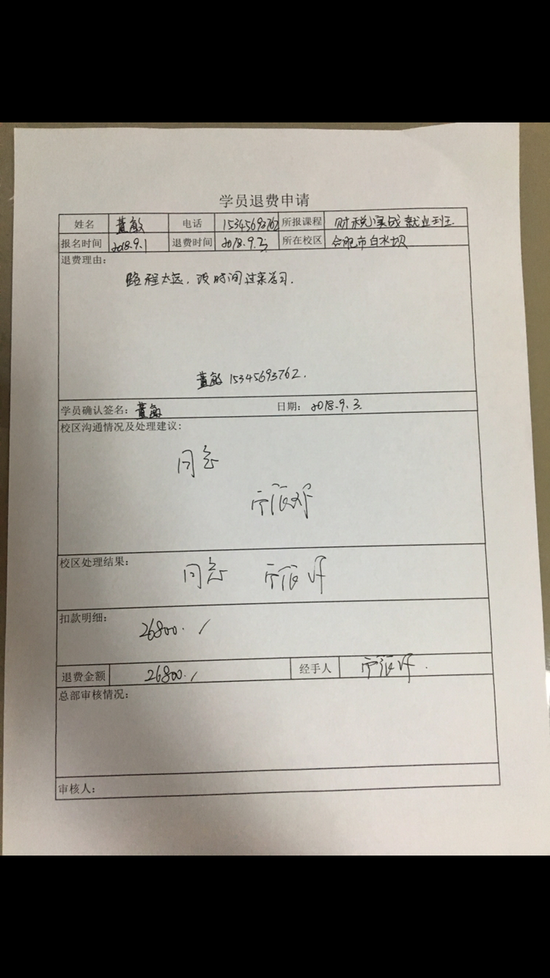 学员退费申请
姓名 董敏 电话 15345693762 所报课程 财税实战就业班
报名时间 2018.9.1 退费时间 2018.9.3 所在校区 合肥市白水坝
退费理由:
路程太远，改时间过来学习.
董敏 15345693762.
学员确认签名: 董敏 日期: 2018.9.3
校区沟通情况及处理建议:
同意
校区处理结果: 同意
扣款明细:
26800.
退费金额 26800. 经手人
总部审核情况:
审核人: